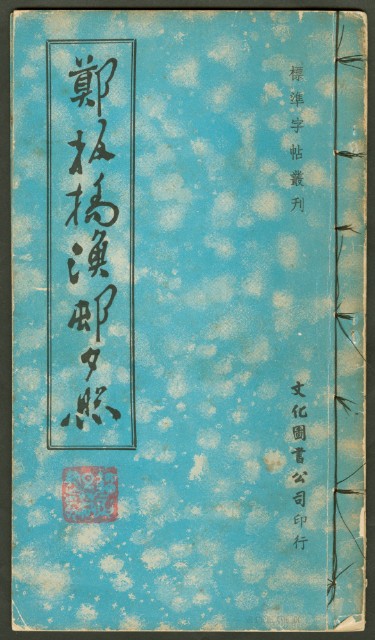 標準字帖叢刊
鄭板橋漁邨夕照
文化圖書公司印行